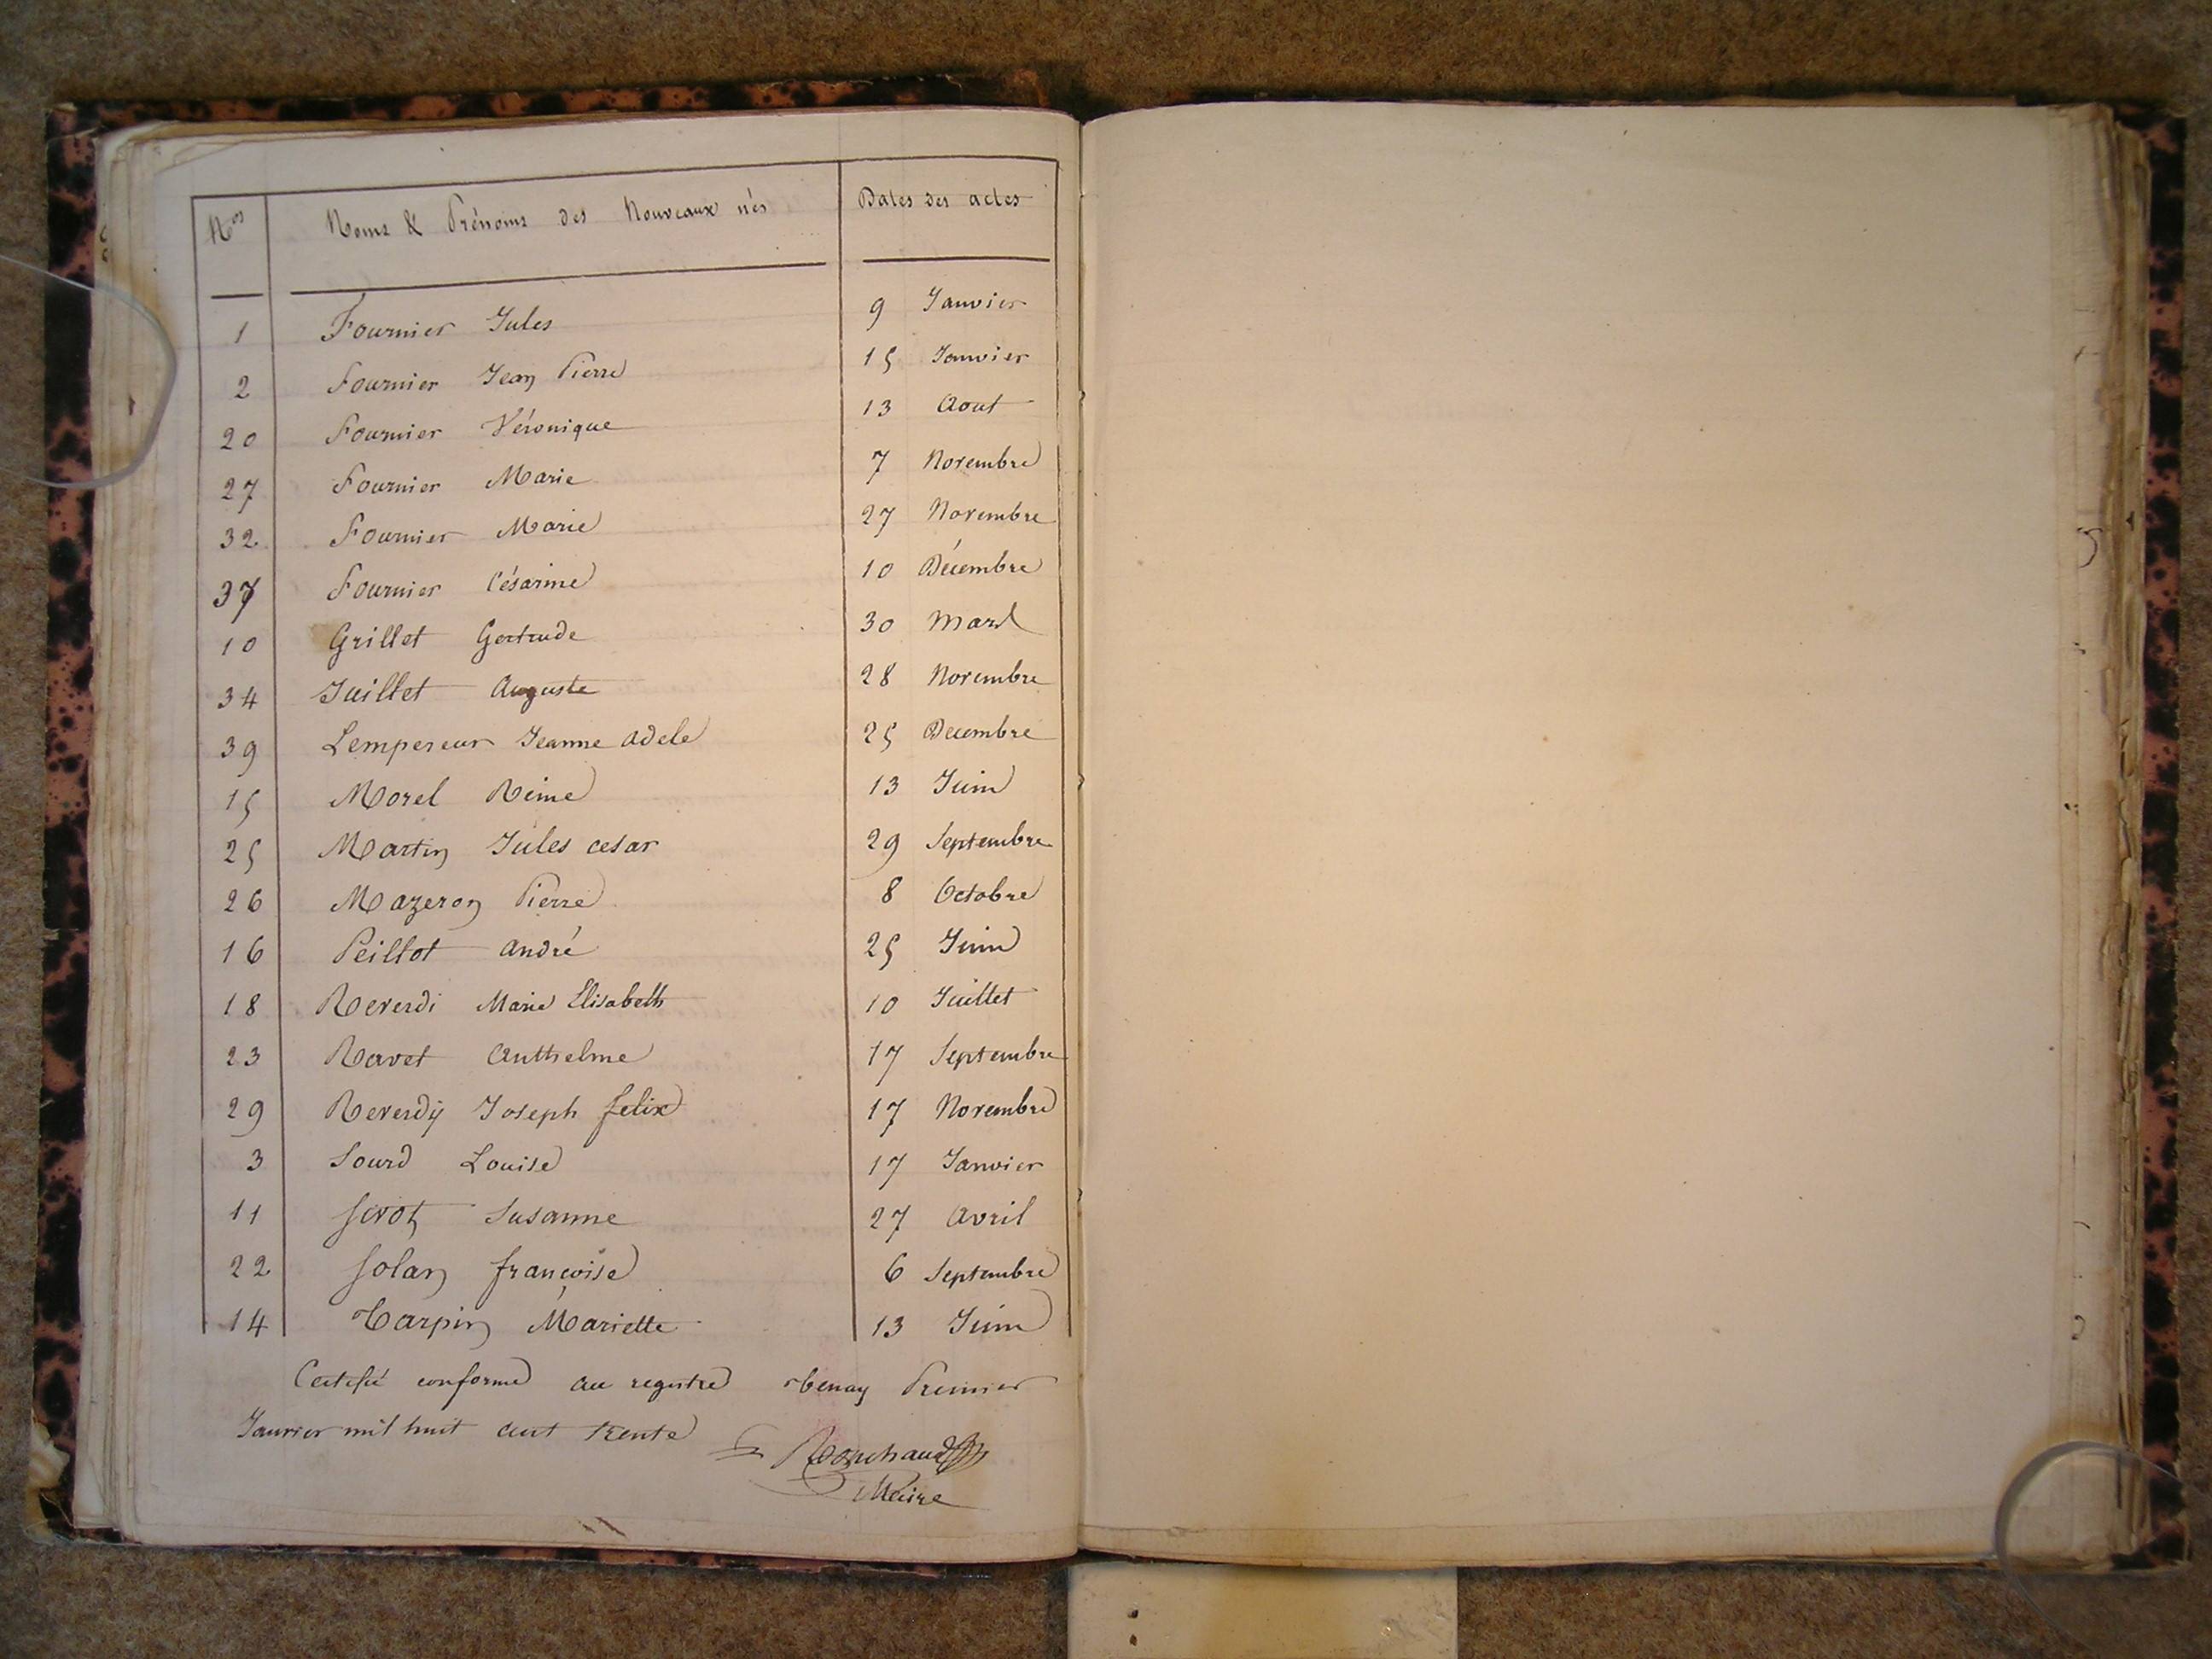 Nos Noms & Prénoms des Nouveaux nés Dates des actes
1 Fournier Jules 9 Janvier
2 Fournier Jean Pierre 15 Janvier
20 Fournier Véronique 13 Aout
27 Fournier Marie 7 Novembre
32 Fournier Marie 27 Novembre
37 Fournier Césarine 10 Décembre
10 Grillet Gertrude 30 Mars
34 Juillet Auguste 28 Novembre
39 Lempereur Jeanne Adele 25 Decembre
15 Morel Reine 13 Juin
25 Martin Jules cesar 29 Septembre
26 Mazeron Pierre 8 Octobre
16 Peillot André 25 Juin
18 Reverdi Marie Elisabeth 10 Juillet
23 Ravet Anthelme 17 Septembre
29 Reverdy Joseph felix 17 Novembre
3 Sourd Louise 17 Janvier
11 Susanne 27 Avril
22 Solan françoise 6 Septembre
14 Tarpin Mariette 13 Juin
Certifié conforme au registre Tenay Premier
Janvier mil huit cent trente
Maire